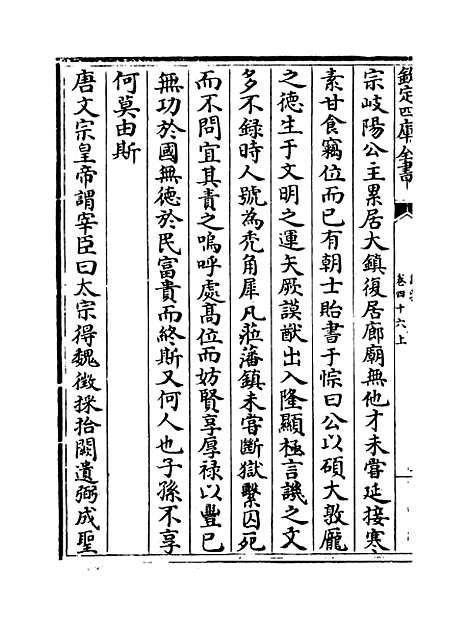 欽定四庫全書
卷四十六上
宗岐陽公主累居大鎮復居廊廟無他才未嘗延接寒
素甘食竊位而已有朝士貽書于悰曰公以碩大敦龐
之德生于文明之運矢厥謨猷出入隆顯極言譏之文
多不録時人號為禿角犀凡莅藩鎮未嘗斷獄繫囚死
而不問宜其責之嗚呼處髙位而妨賢享厚禄以豐已
無功於國無德於民富貴而終斯又何人也子孫不享
何莫由斯
唐文宗皇帝謂宰臣曰太宗得魏徴採拾闕遺弼成聖